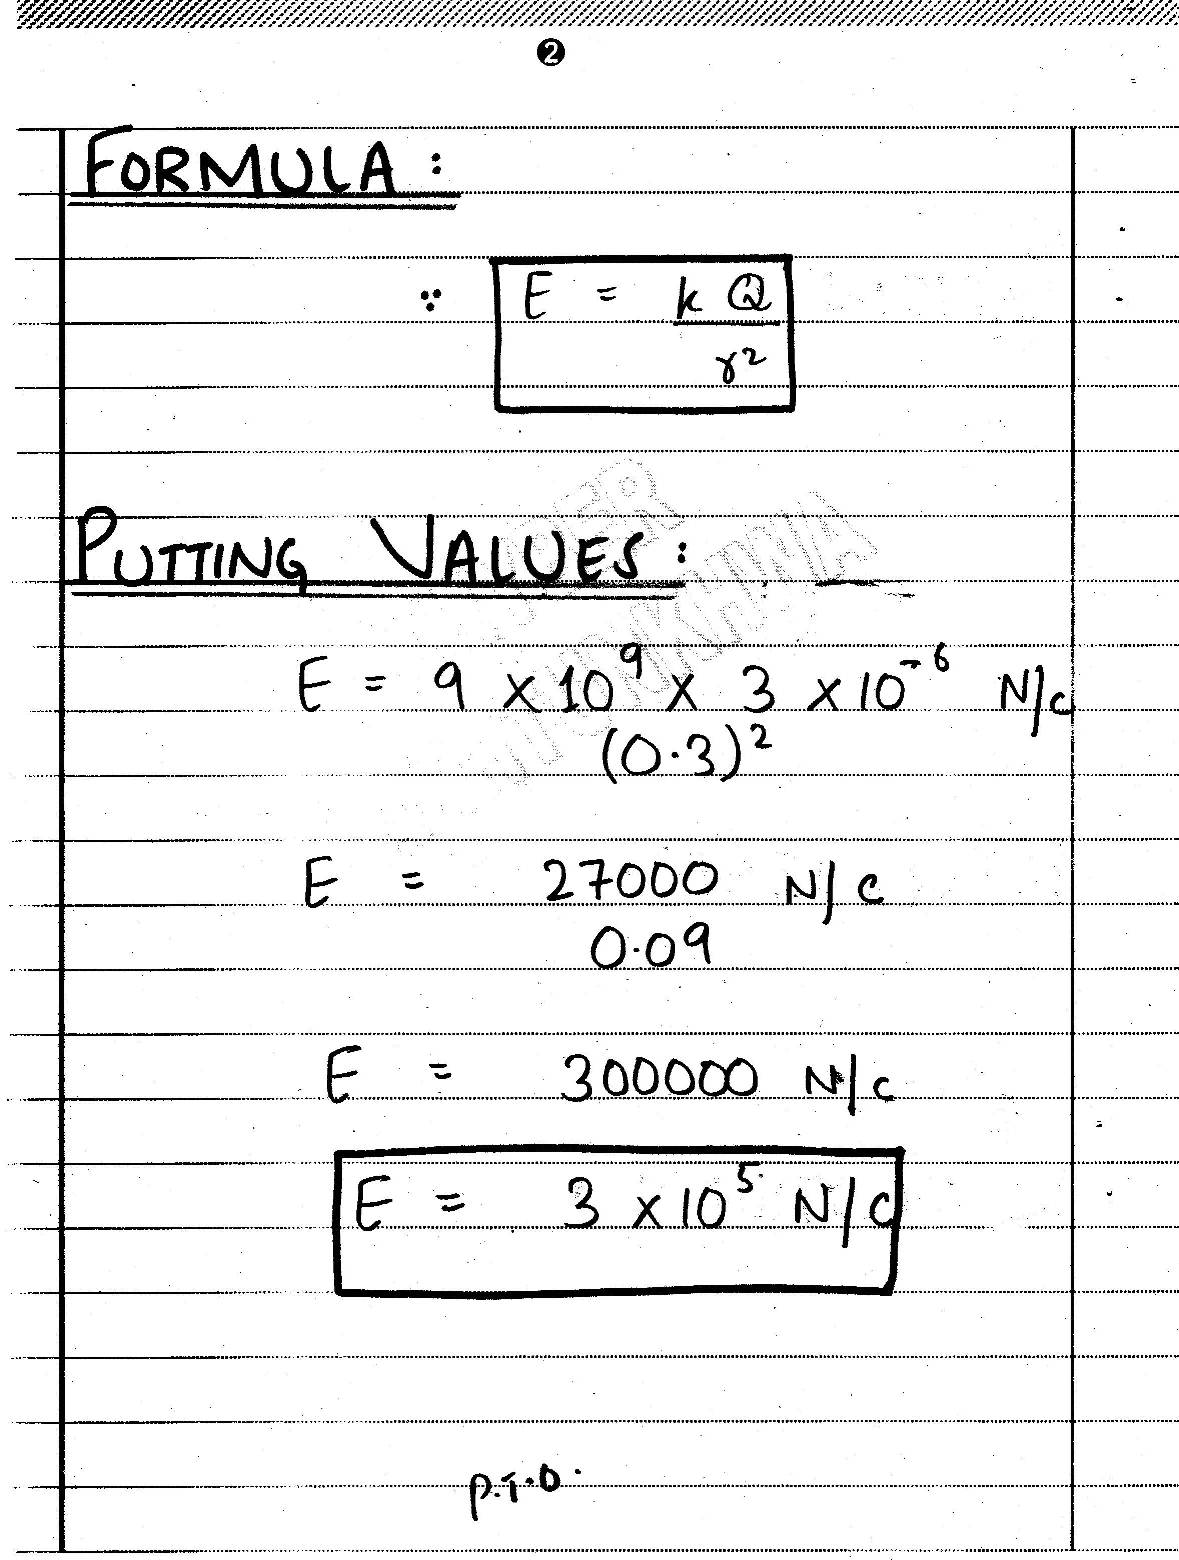 2
FORMULA :
∵ E = k Q
r²
PUTTING VALUES :
E = 9 × 10⁹ × 3 × 10⁻⁶ N/C
(0.3)²
E = 27000 N/C
0.09
E = 300000 N/C
E = 3 × 10⁵ N/C
P.T.O.